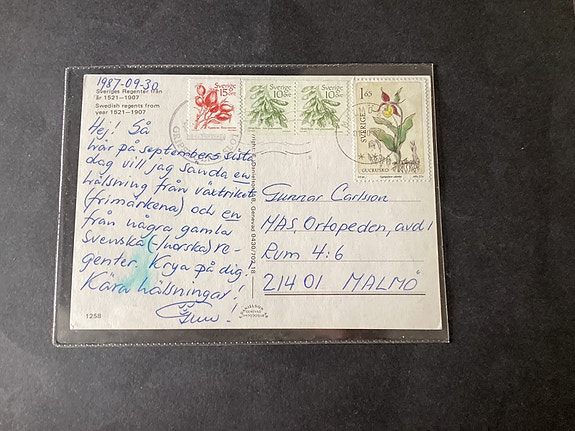 1987-09-30
Sveriges Regenter från
år 1521—1907
Swedish regents from
year 1521—1907
Hej! Så
här på septembers sista
dag vill jag sända en
hälsning från växtriket
(frimärkena) och en
från några gamla
svenska (-norska) re-
genter. Krya på dig.
Kära hälsningar!
1258
Sverige
15 öre
Sverige
10 öre
Sverige
10 öre
1.65
SVERIGE
GUCKUSKO
Gunnar Carlson
MAS, Ortopeden, avd 1
Rum 4:6
214 01 MALMÖ